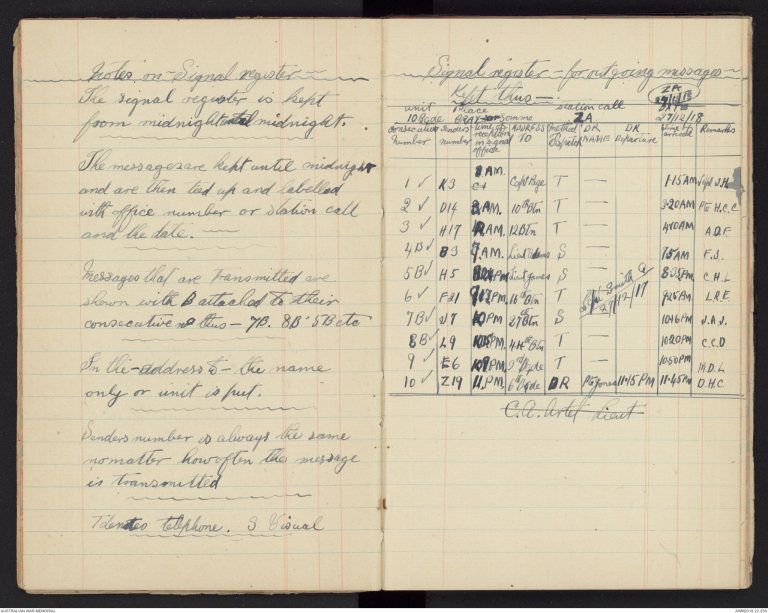 Notes on Signal register
The signal register is kept
from midnight until midnight.
The messages are kept until midnight
and are then tied up and labelled
with office number or station call
and the date.
Messages that are transmitted are
shown with B attached to their
consecutive no thus - 7B. 8B. 5B etc
In the - address to - the name
only or unit is put.
Senders number is always the same
no matter how often the message
is transmitted
T denotes telephone. S Visual
Signal register - for outgoing messages
Kept thus -
unit Place station call DATE
10 Bgde BRAY-sur-Somme ZA 27/12/18
ZA
27/12/18
Consecutive Number Senders number Time of reception in signal office ADDRESS TO Method Dispatch DR NAME DR Departure Time of arrival Remarks
1 ✓ K3 1 AM. Capt Page T — 1.15 AM
2 ✓ D14 3 AM. 10th Btn T — 3.20 AM Pte H.C.C
3 ✓ H17 4 AM. 12 Btn T — 4.10 AM A.D.F
4B ✓ B3 7 AM. S — 7.15 AM F.J.
5B ✓ H5 PM Lieut James S — C.H.L
6 ✓ F21 PM. 16th Btn T Smith 27/12/17 9.25 PM L.R.E.
7B ✓ J7 10 PM 27 Btn S 10.16 PM J.A.J.
8B ✓ L9 PM. 44th Btn T — 10.20 PM C.C.D
9 ✓ E6 PM. Bgde T — 10.50 PM M.D.L
10 ✓ Z19 11. P.M. 6th Bgde DR Pte Jones 11.15 PM 11.45 PM O.H.C.
Lieut
AUSTRALIAN WAR MEMORIAL